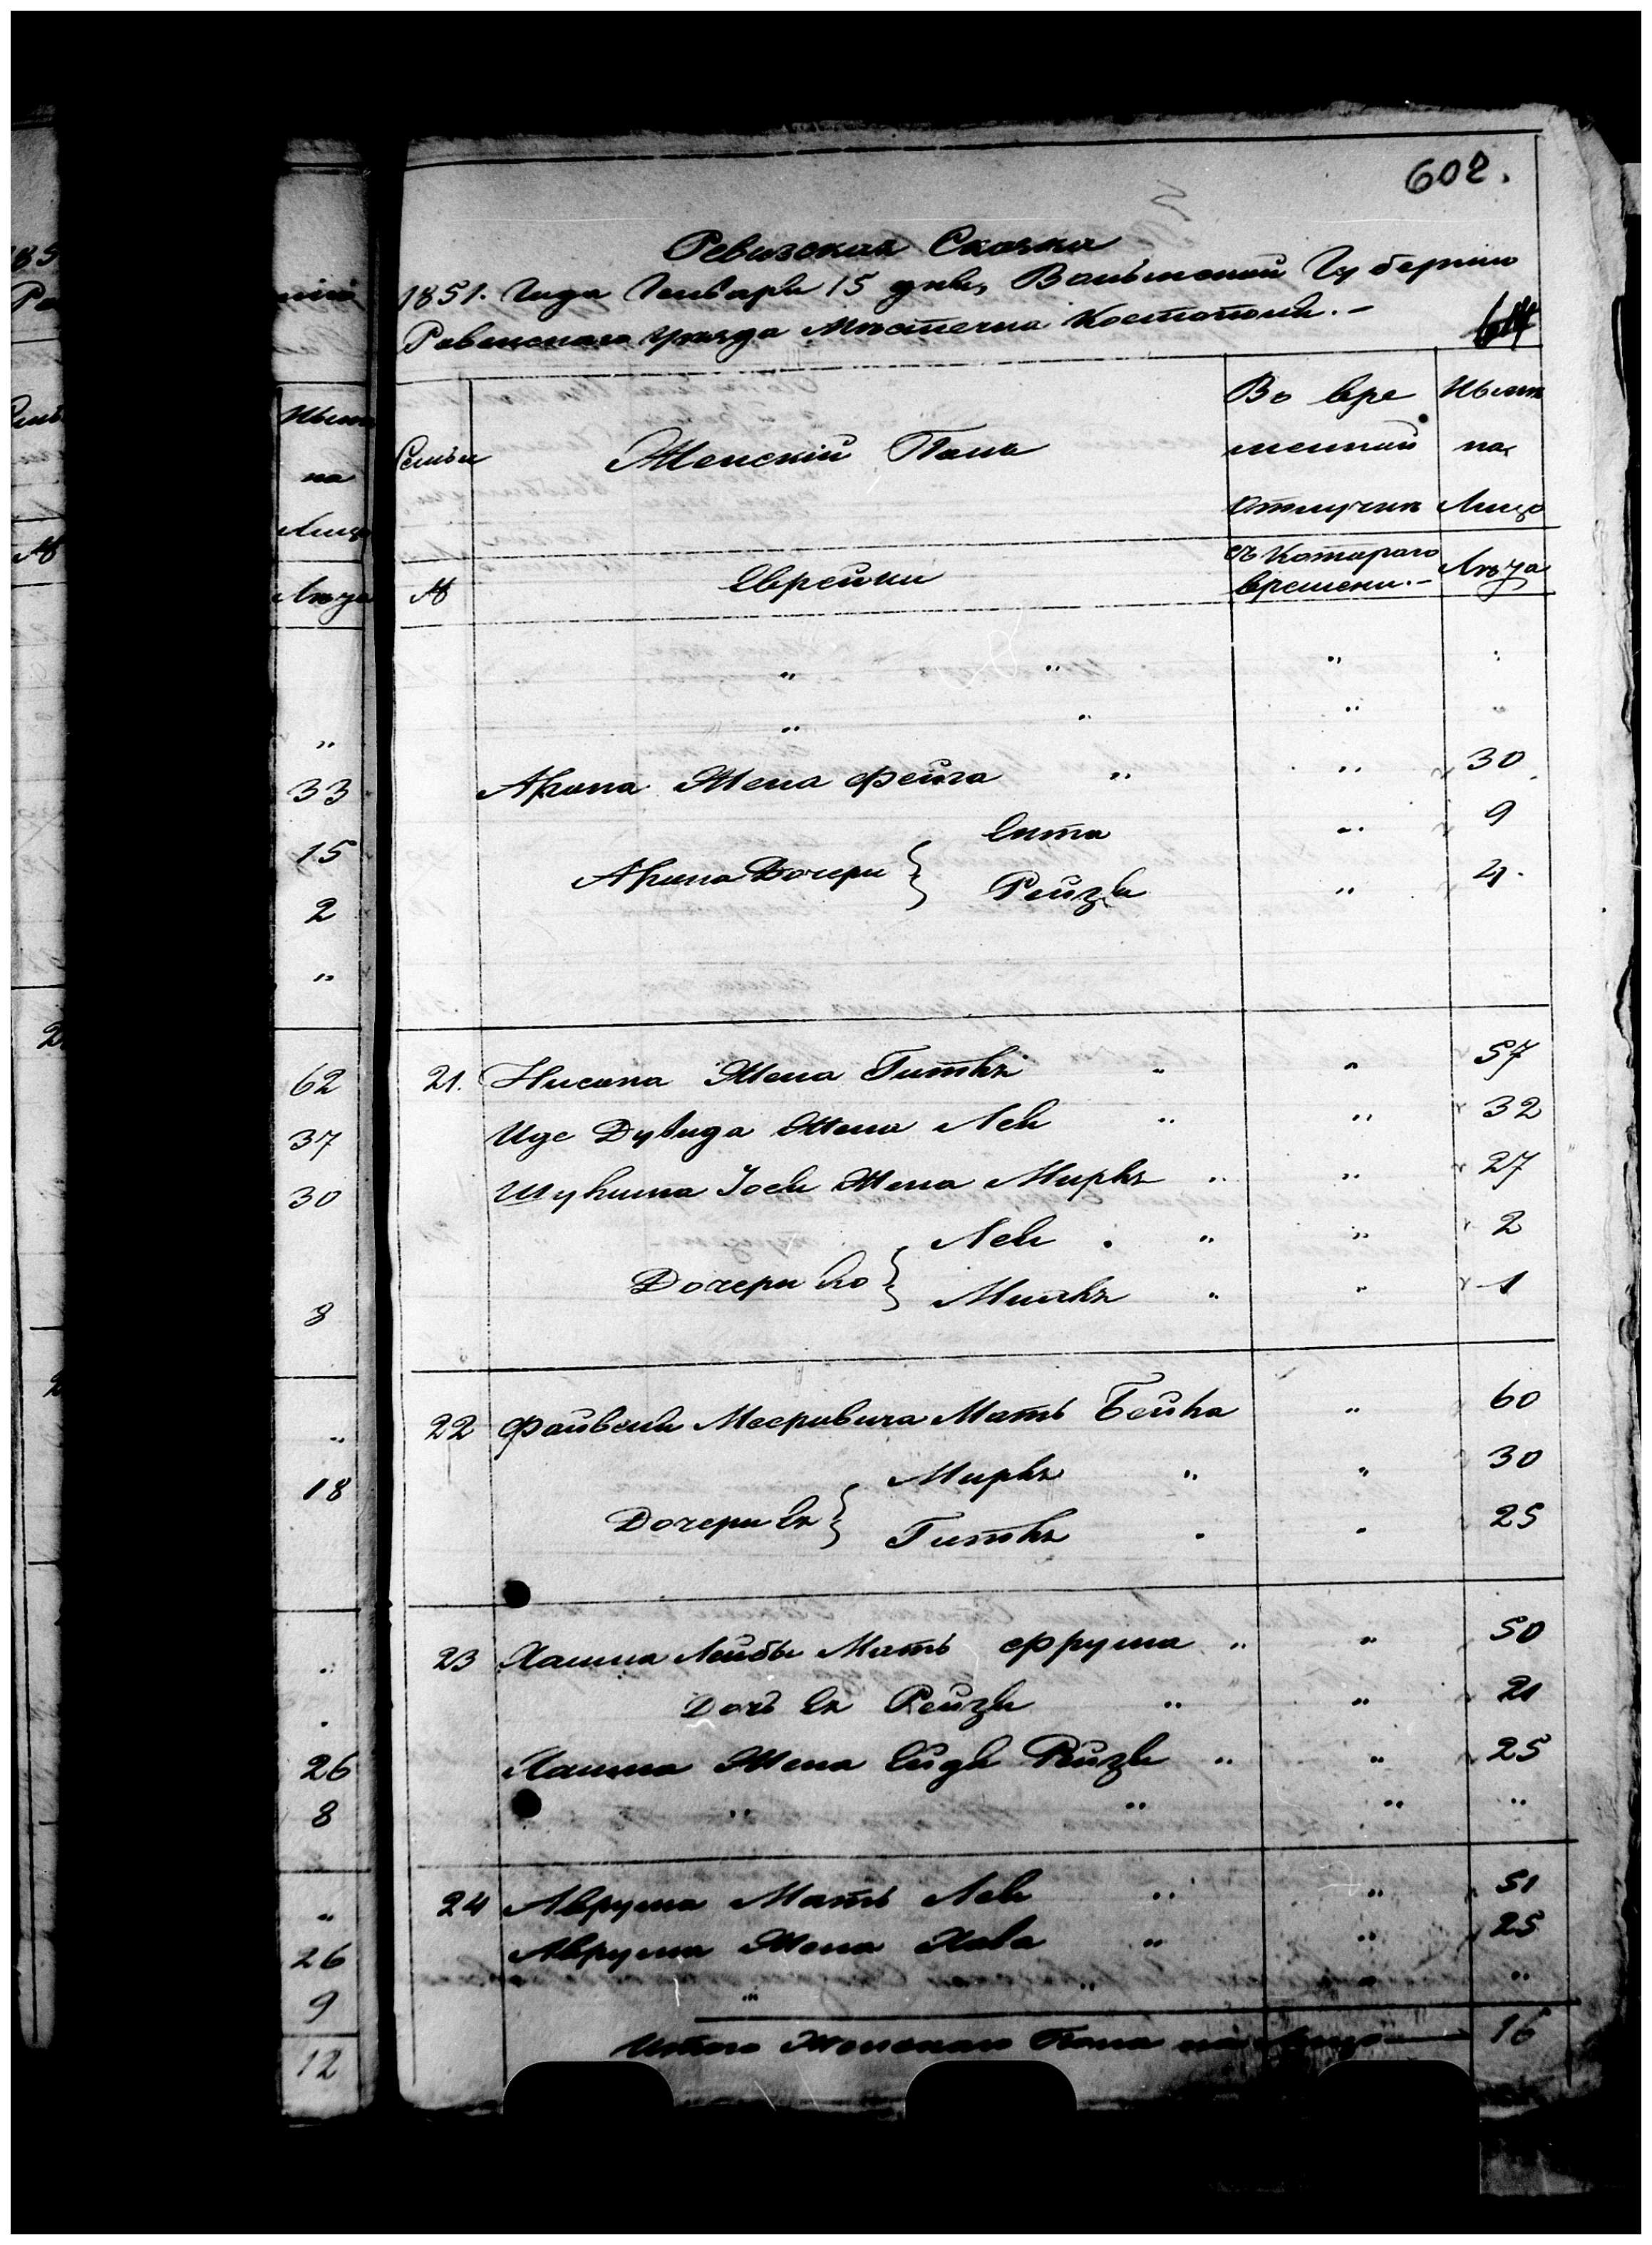 602.
Ревизская Сказка
1851. Года Генваря 15 дня, Волынской Губернии
Ровенского Уезда Местечка Костополя.-
Семьи
Женскій Полъ
Во вре
менной
отлучке
Ныне
на
Лицо
№
Еврейки
съ Котораго
времени.-
Лета
" " " "
" " " "
Арона Жена Фейга " " 30
Арона Дочери { Ента " 9
Рейзя " 4.
21. Нисона Жена Гитля " " 57
Иде Дувида Жена Лея " " 32
Шулима Іося Жена Мирля " " 27
Дочери его { Лея " " 2
Милля " " 1
22 Файвеля Мееровича Мать Бейла " 60
Дочери ея { Мирля " " 30
Гитля " " 25
23 Хаима Лейбы Мать Фрума " " 50
Дочь ея Рейзя " " 21
Хаима Жена Ейдя Рейзя " " 25
" " " "
24 Аврума Мать Лея " " 51
Аврума Жена Хава " " 25
" " " "
Итого Женскаго Пола на Лицо — 16
Ныне
на
Лицо
Лета
"
33
15
2
"
62
37
30
8
"
18
"
"
26
8
"
26
9
12